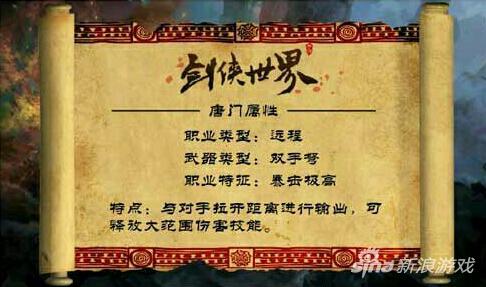 剑侠世界
唐门属性
职业类型：远程
武器类型：双手弩
职业特征：暴击极高
特点：与对手拉开距离进行输出，可
释放大范围伤害技能。
sina新浪游戏